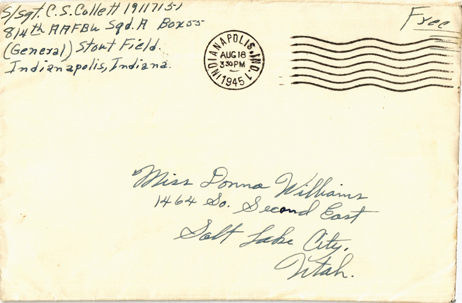 S/Sgt. C.S. Collett 19117151
814th AAFBU Sqd. A Box 55
(General) Stout Field.
Indianapolis, Indiana.
INDIANAPOLIS, IND. 1
AUG 18
3 30 PM
1945
Free
Miss Donna Williams
1464 So. Second East
Salt Lake City,
Utah.